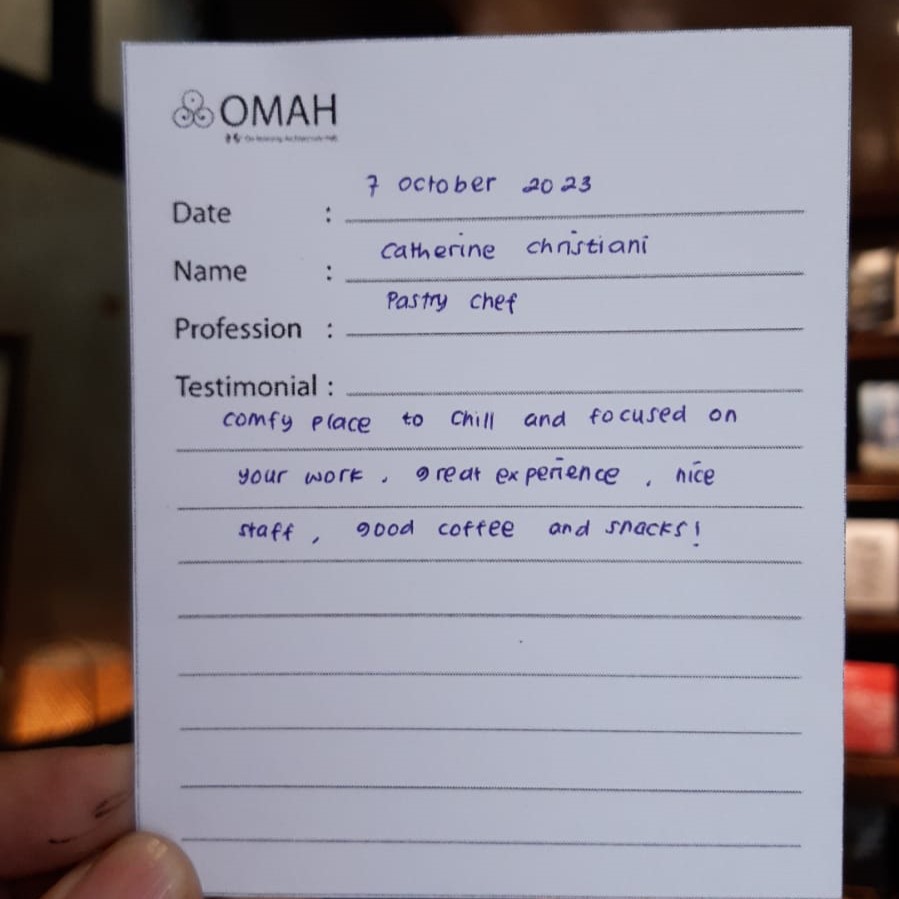 OMAH
Date : 7 october 2023
Name : Catherine christiani
Profession : Pastry chef
Testimonial :
comfy place to chill and focused on
your work , great experience , nice
staff , good coffee and snacks!